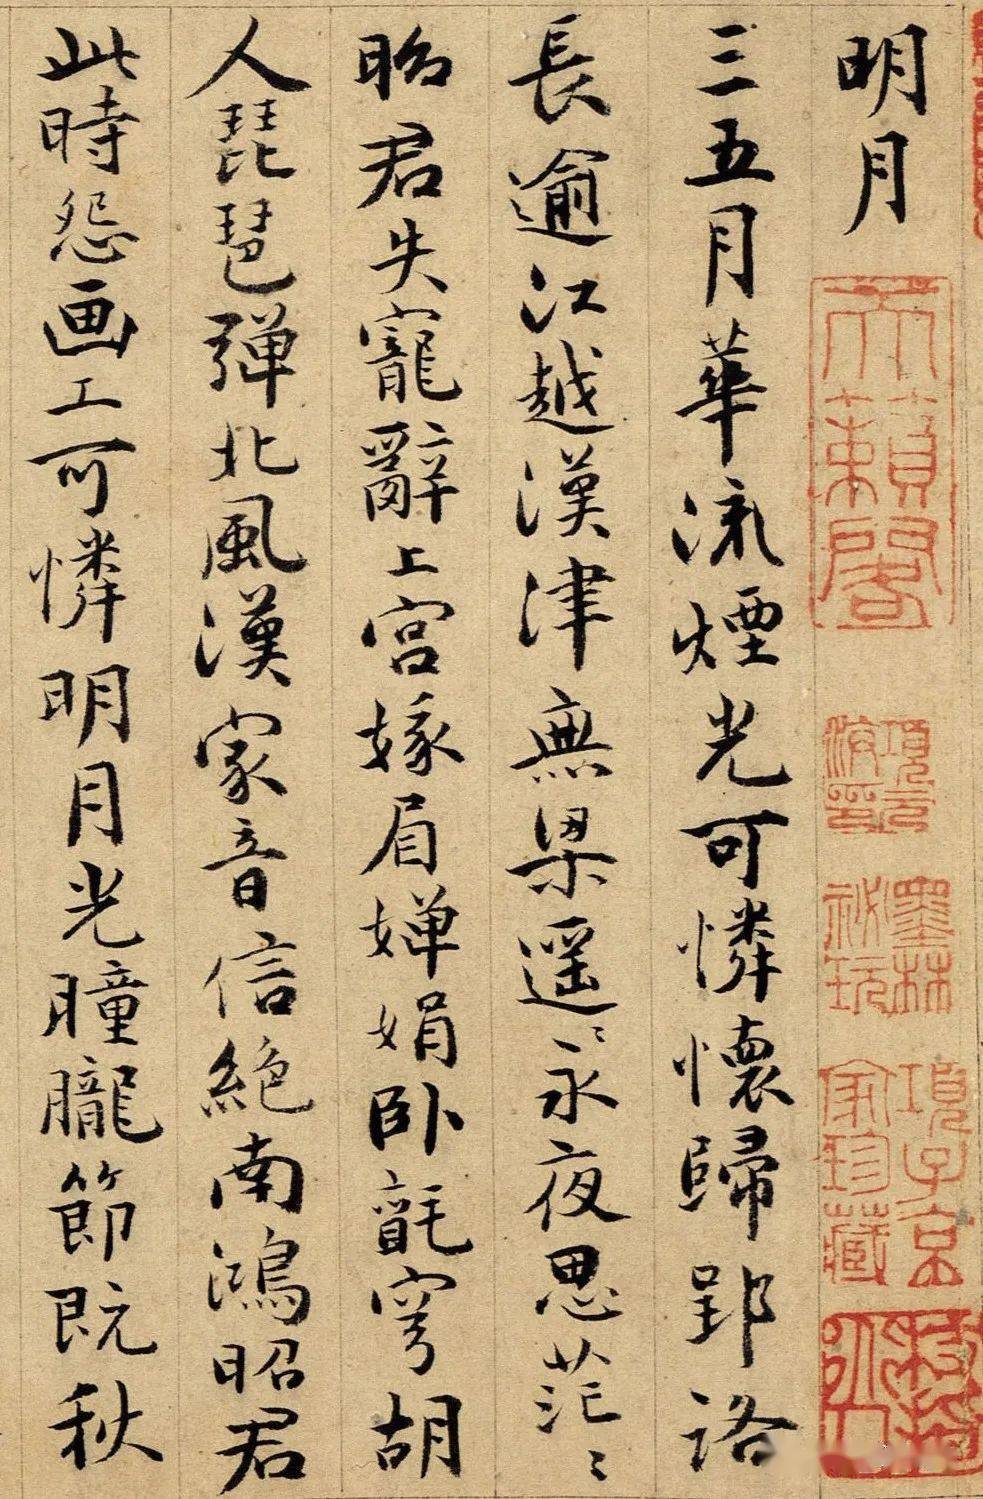 明月
三五月華流煙光可憐懷歸郢路
長逾江越漢津無梁遥〻永夜思茫〻
昭君失寵辭上宮嫁眉嬋娟卧氈穹胡
人琵琶彈北風漢家音信絶南鴻昭君
此時怨画工可憐明月光朣朧節既秋
天籟閣
項元汴印
墨林秘玩
項子京家珍藏